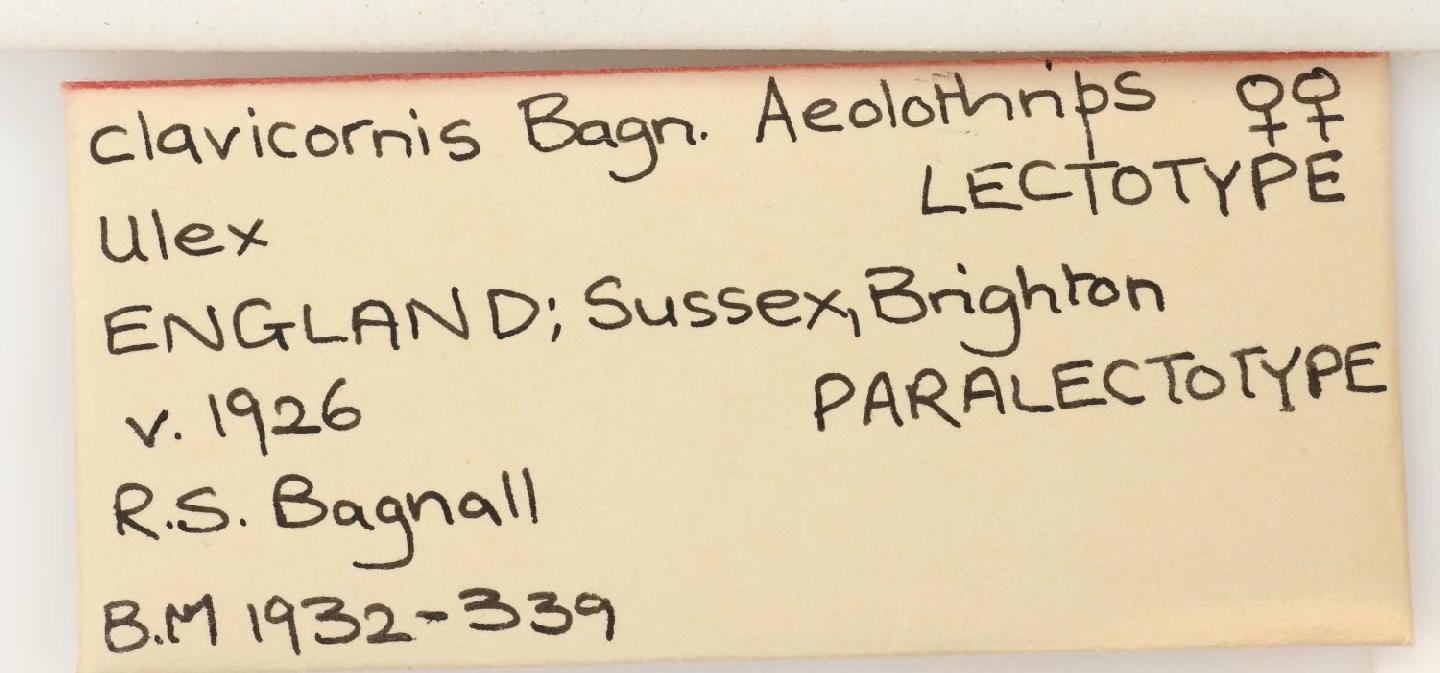 clavicornis Bagn. Aeolothrips ♀♀
LECTOTYPE
Ulex
ENGLAND; Sussex, Brighton
v. 1926
PARALECTOTYPE
R.S. Bagnall
B.M 1932-339